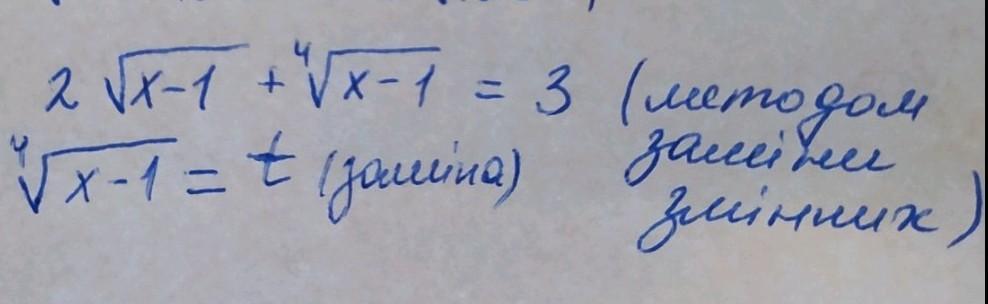 2 √(x-1) + ⁴√(x-1) = 3 (методом
заміни
змінних)
⁴√(x-1) = t (заміна)